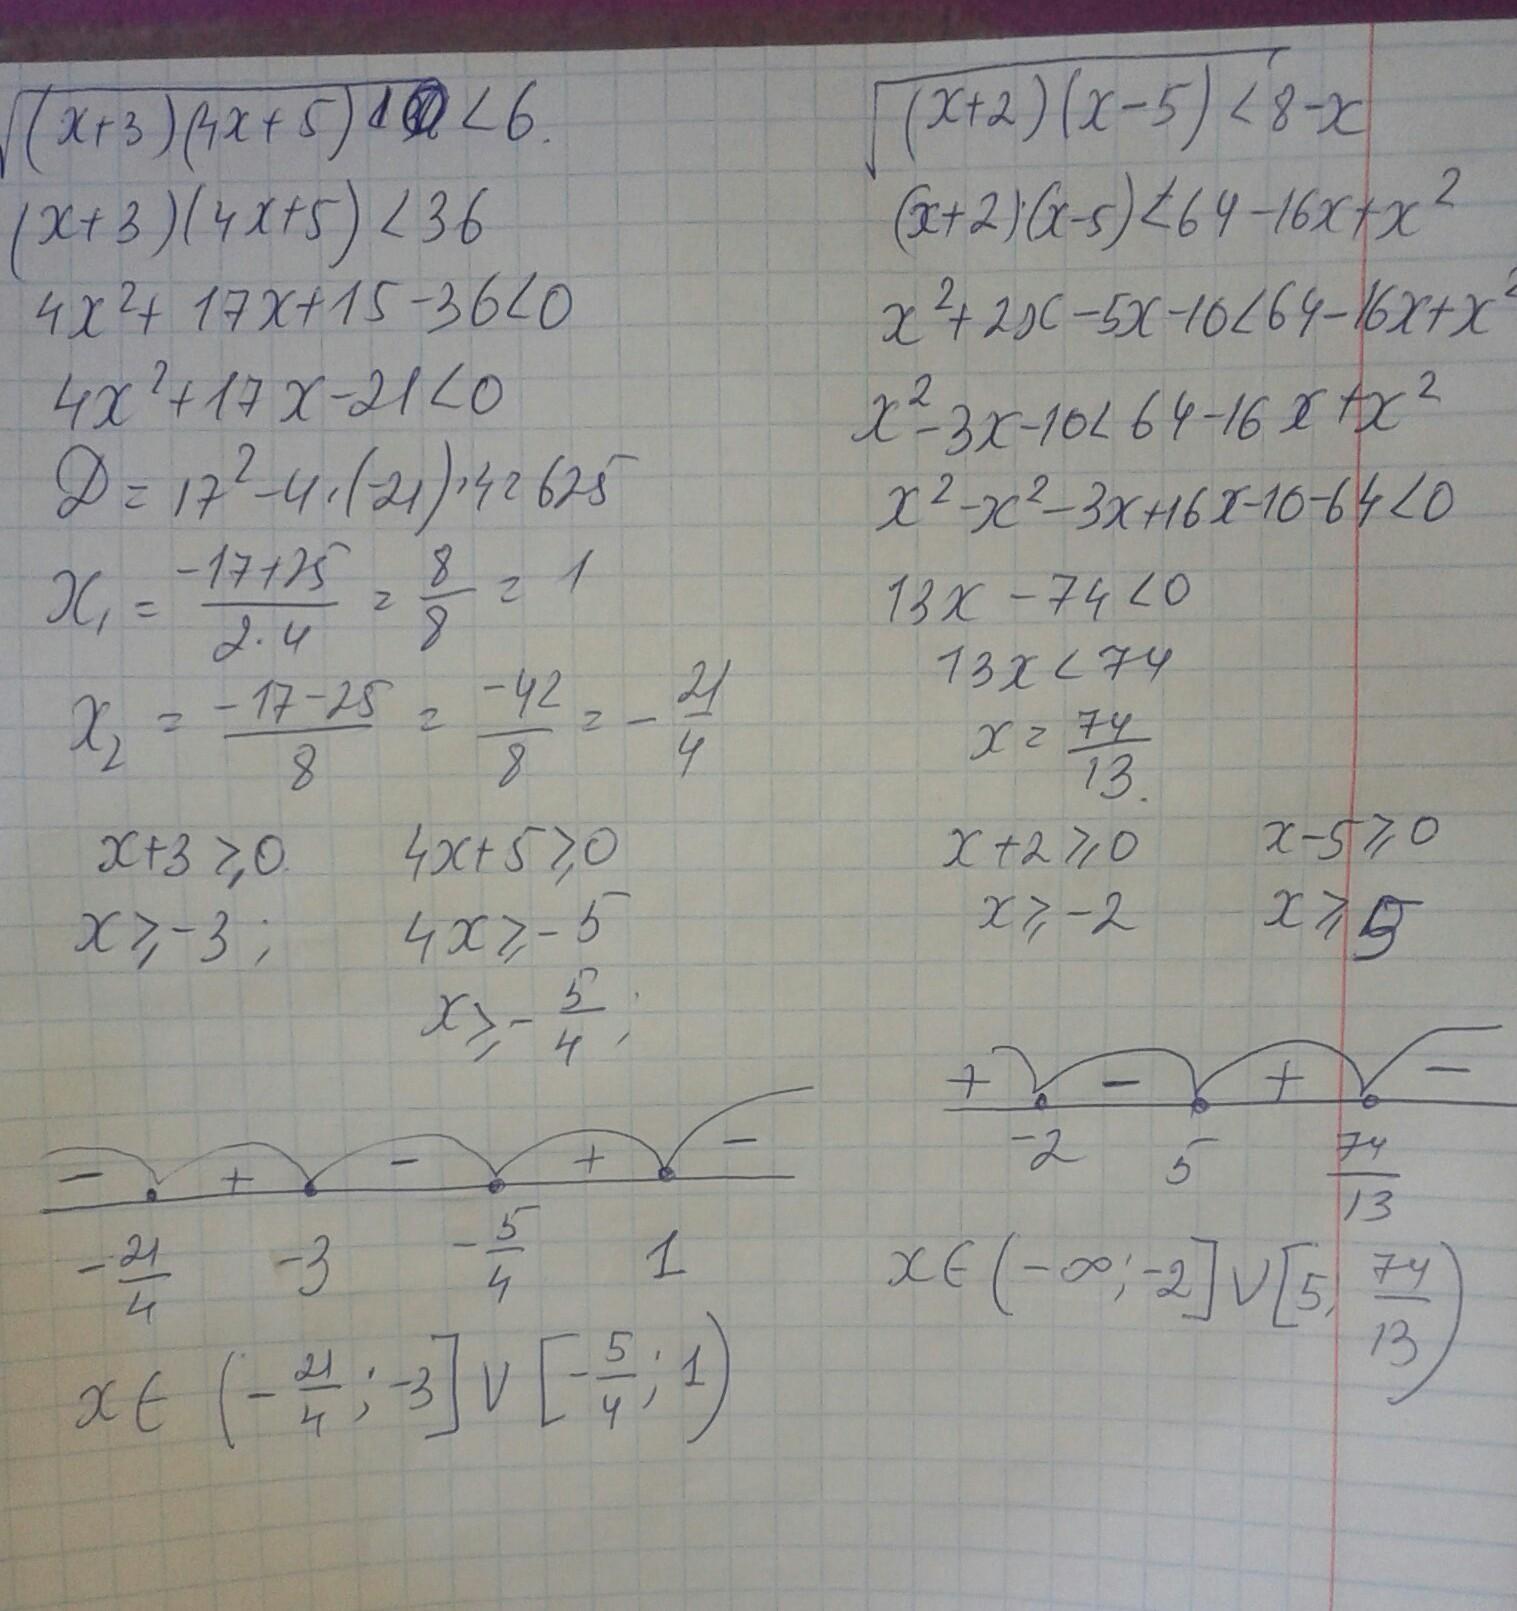 √(x+3)(4x+5) < 6.
(x+3)(4x+5) < 36
4x²+ 17x+15-36<0
4x²+17x-21<0
D = 17²-4·(-21)·4=625
x₁ = (-17+25)/(2·4) = 8/8 = 1
x₂ = (-17-25)/8 = -42/8 = -21/4
x+3⩾0 4x+5⩾0
x⩾-3; 4x⩾-5
x⩾-5/4;
- + - + -
-21/4 -3 -5/4 1
x∈ (-21/4; -3] ∨ [-5/4; 1)
√(x+2)(x-5) < 8-x
(x+2)·(x-5) < 64-16x+x²
x²+2x-5x-10<64-16x+x²
x²-3x-10<64-16x+x²
x²-x²-3x+16x-10-64<0
13x-74<0
13x<74
x = 74/13.
x+2⩾0 x-5⩾0
x⩾-2 x⩾5
+ - + -
-2 5 74/13
x∈(-∞;-2]∨[5; 74/13)